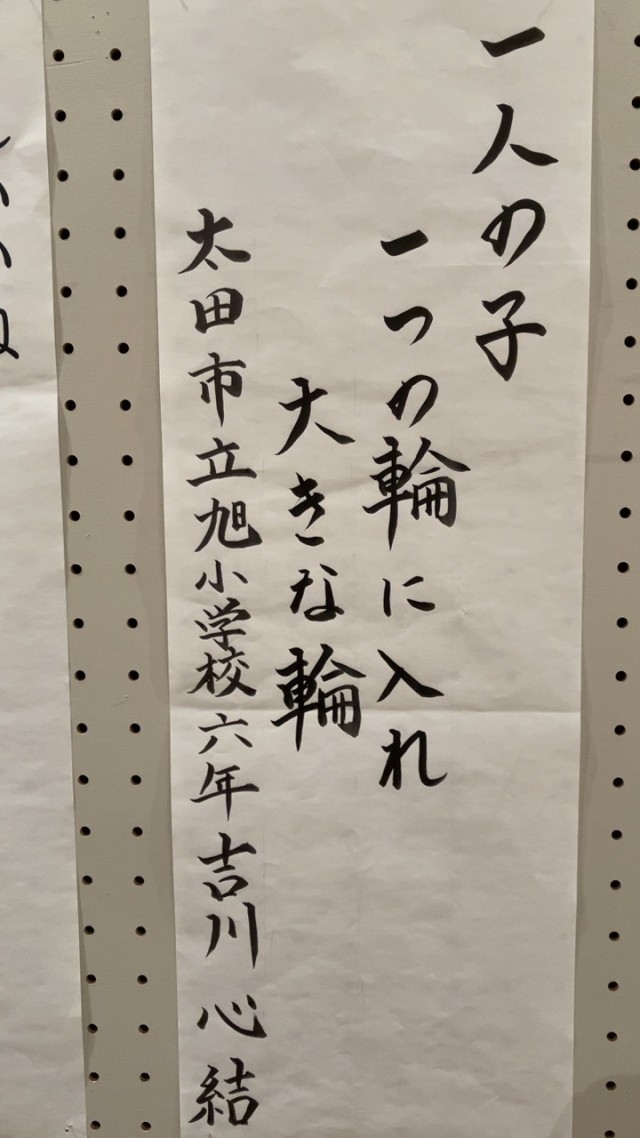 一人の子
一つの輪に入れ
大きな輪
太田市立旭小学校六年吉川心結